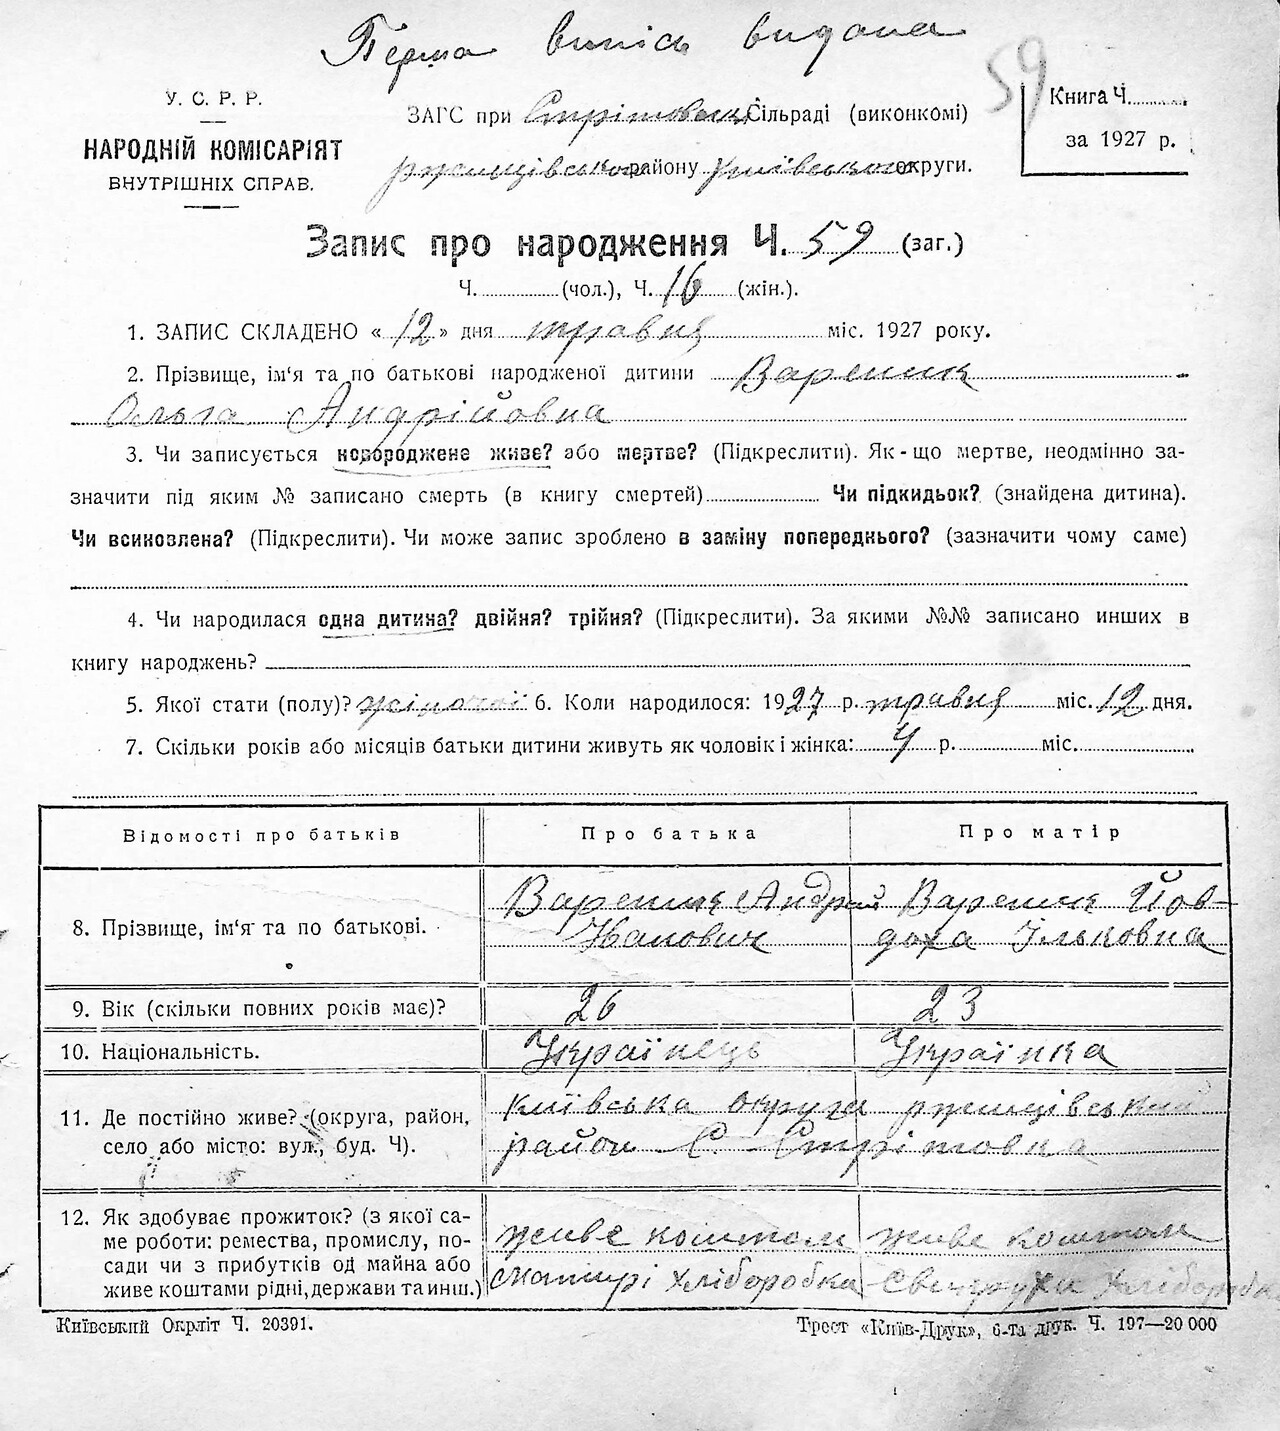 Перша випись видана
59
У. С. Р. Р.
НАРОДНІЙ КОМІСАРІЯТ
ВНУТРІШНІХ СПРАВ.
ЗАГС при Стрітовськ. Сільраді (виконкомі)
ржищівського району Київського округи.
Книга Ч.
за 1927 р.
Запис про народження Ч. 59 (заг.)
Ч. (чол.), Ч. 16 (жін.).
1. ЗАПИС СКЛАДЕНО «12» дня травня міс. 1927 року.
2. Прізвище, ім‘я та по батькові народженої дитини Вареник
Ольга Андрійовна
3. Чи записується новороджене живе? або мертве? (Підкреслити). Як-що мертве, неодмінно за-
значити під яким № записано смерть (в книгу смертей) Чи підкидьок? (знайдена дитина).
Чи всиновлена? (Підкреслити). Чи може запис зроблено в заміну попереднього? (зазначити чому саме)
4. Чи народилася одна дитина? двійня? трійня? (Підкреслити). За якими №№ записано инших в
книгу народжень?
5. Якої стати (полу)? жіночої 6. Коли народилося: 1927 р. травня міс. 12 дня.
7. Скільки років або місяців батьки дитини живуть як чоловік і жінка: 4 р. міс.
Відомості про батьків
Про батька
Про матір
8. Прізвище, ім‘я та по батькові.
Вареник Андрій
Іванович
Вареник Йов-
доха Ільковна
9. Вік (скільки повних років має)?
26
23
10. Національність.
Українець
Українка
11. Де постійно живе? (округа, район,
село або місто: вул., буд. Ч).
Київська округа ржищівський
район С. Стрітовка
12. Як здобуває прожиток? (з якої са-
ме роботи: ремества, промислу, по-
сади чи з прибутків од майна або
живе коштами рідні, держави та инш.)
живе коштом
матирі хліборобка
живе коштом
свекрухи хліборобка
Київський Окрліт Ч. 20391.
Трест «Київ-Друк», 6-та друк. Ч. 197—20 000